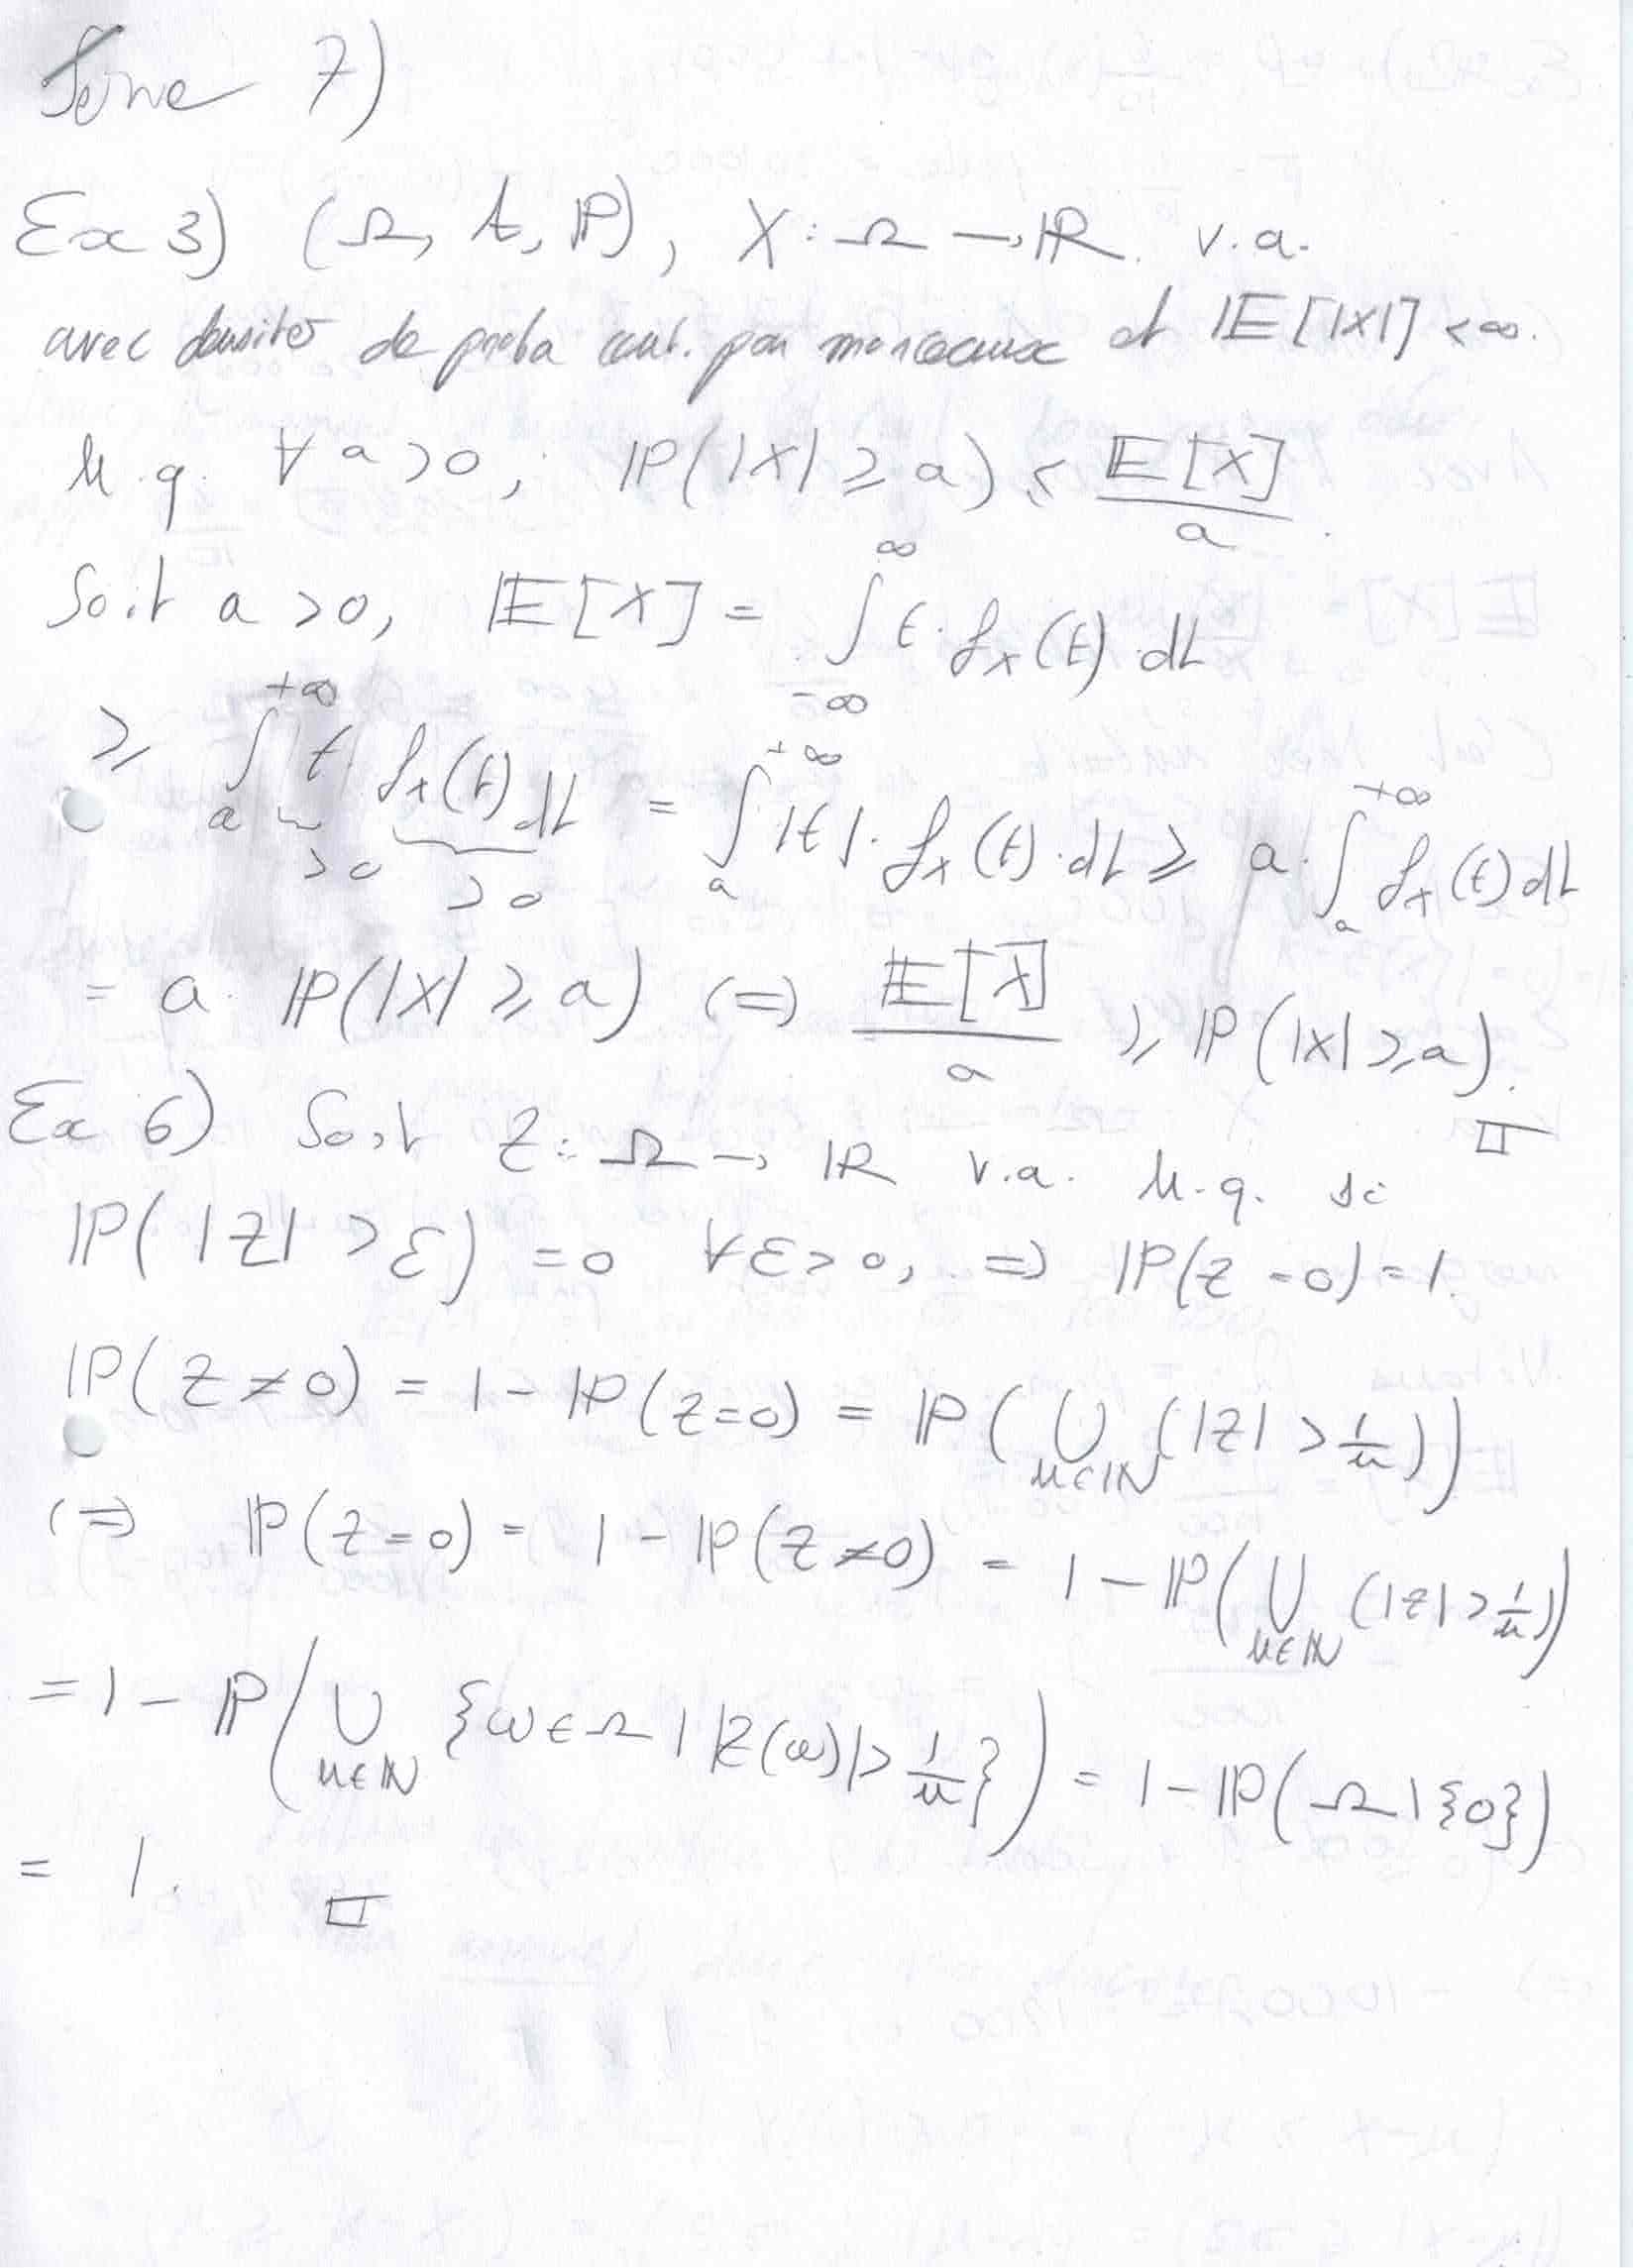 Série 7)
Ex 3) (Ω, A, ℙ), X : Ω → ℝ. v.a.
avec densité de proba cont. par morceaux et 𝔼[|X|] < ∞.
M.q. ∀ a > 0, ℙ(|X| ≥ a) ≤ 𝔼[X] / a.
Soit a > 0, 𝔼[X] = ∫_{-∞}^{∞} t · f_X(t) · dt
≥ ∫_{a}^{+∞} t (>0) f_X(t) dt (>0) = ∫_{a}^{+∞} |t| · f_X(t) · dt ≥ a · ∫_{a}^{+∞} f_X(t) dt
= a · ℙ(|X| ≥ a) (=) 𝔼[X] / a ≥ ℙ(|X| ≥ a). □
Ex 6) Soit Z : Ω → ℝ v.a. M.q. si
ℙ(|Z| > ε) = 0 ∀ ε > 0, => ℙ(Z = 0) = 1.
ℙ(Z ≠ 0) = 1 - ℙ(Z = 0) = ℙ(⋃_{n∈ℕ} (|Z| > 1/n))
(=) ℙ(Z = 0) = 1 - ℙ(Z ≠ 0) = 1 - ℙ(⋃_{n∈ℕ} (|Z| > 1/n))
= 1 - ℙ(⋃_{n∈ℕ} {ω ∈ Ω | |Z(ω)| > 1/n}) = 1 - ℙ(Ω \ {0})
= 1. □